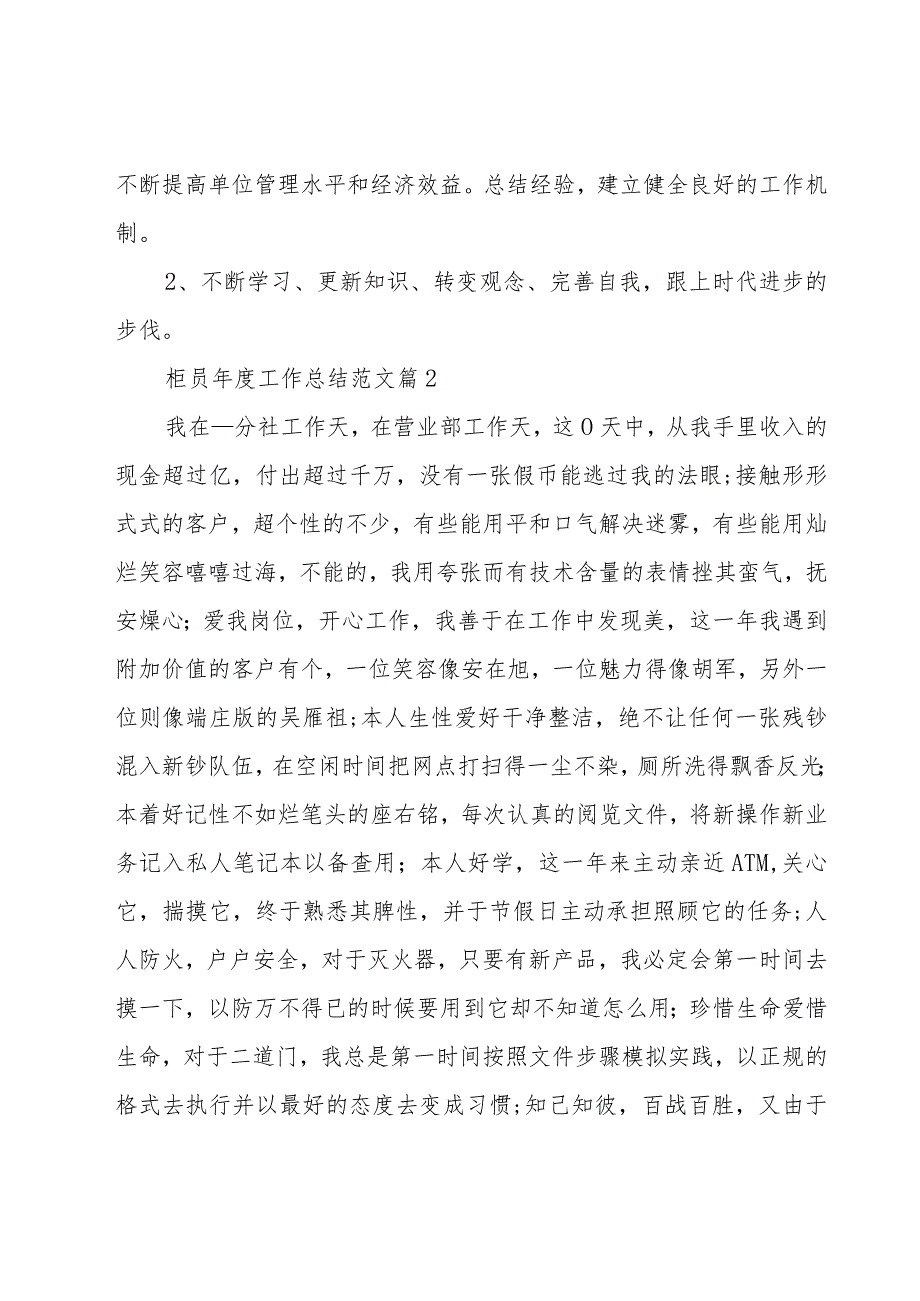 不断提高单位管理水平和经济效益。总结经验，建立健全良好的工作机
制。
2、不断学习、更新知识、转变观念、完善自我，跟上时代进步的
步伐。
柜员年度工作总结范文篇2
我在—分社工作天，在营业部工作天，这O天中，从我手里收入的
现金超过亿，付出超过千万，没有一张假币能逃过我的法眼;接触形形
式式的客户，超个性的不少，有些能用平和口气解决迷雾，有些能用灿
烂笑容嘻嘻过海，不能的，我用夸张而有技术含量的表情挫其蛮气，抚
安燥心；爱我岗位，开心工作，我善于在工作中发现美，这一年我遇到
附加价值的客户有个，一位笑容像安在旭，一位魅力得像胡军，另外一
位则像端庄版的吴雁祖;本人生性爱好干净整洁，绝不让任何一张残钞
混入新钞队伍，在空闲时间把网点打扫得一尘不染，厕所洗得飘香反光；
本着好记性不如烂笔头的座右铭，每次认真的阅览文件，将新操作新业
务记入私人笔记本以备查用；本人好学，这一年来主动亲近ATM,关心
它，揣摸它，终于熟悉其脾性，并于节假日主动承担照顾它的任务;人
人防火，户户安全，对于灭火器，只要有新产品，我必定会第一时间去
摸一下，以防万不得已的时候要用到它却不知道怎么用；珍惜生命爱惜
生命，对于二道门，我总是第一时间按照文件步骤模拟实践，以正规的
格式去执行并以最好的态度去变成习惯;知己知彼，百战百胜，又由于